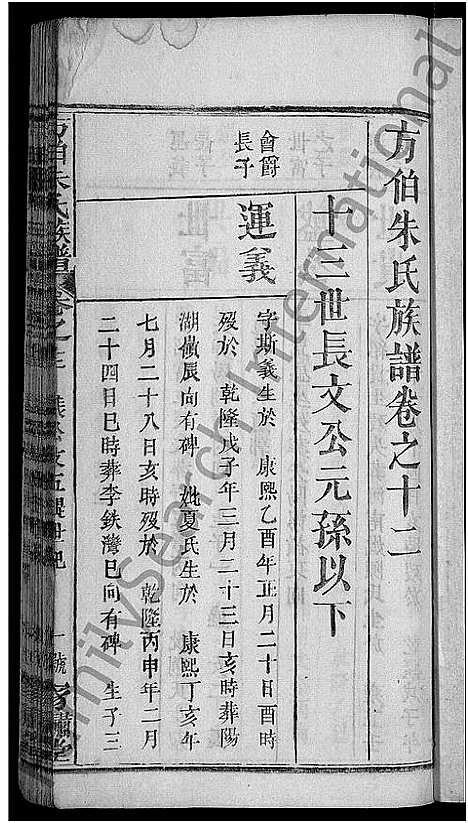 方伯朱氏族譜卷之十二
十三世長文公元孫以下
會爵
長子
運義
字斯義生於 康熙乙酉年正月二十日酉時
歿於 乾隆戊子年三月二十三日亥時葬陽
湖㘭辰向有碑 妣夏氏生於 康熙丁亥年
七月二十八日亥時歿於 乾隆丙申年二月
二十四日巳時葬李鉄灣巳向有碑 生子三
方伯朱氏族譜
一號
FamilySearch International